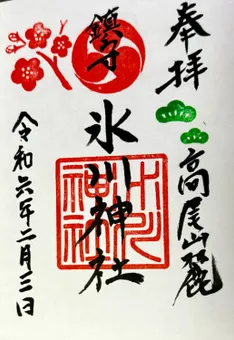 奉拝
高尾山麓
鎮守
氷川神社
氷川神社
令和六年二月三日